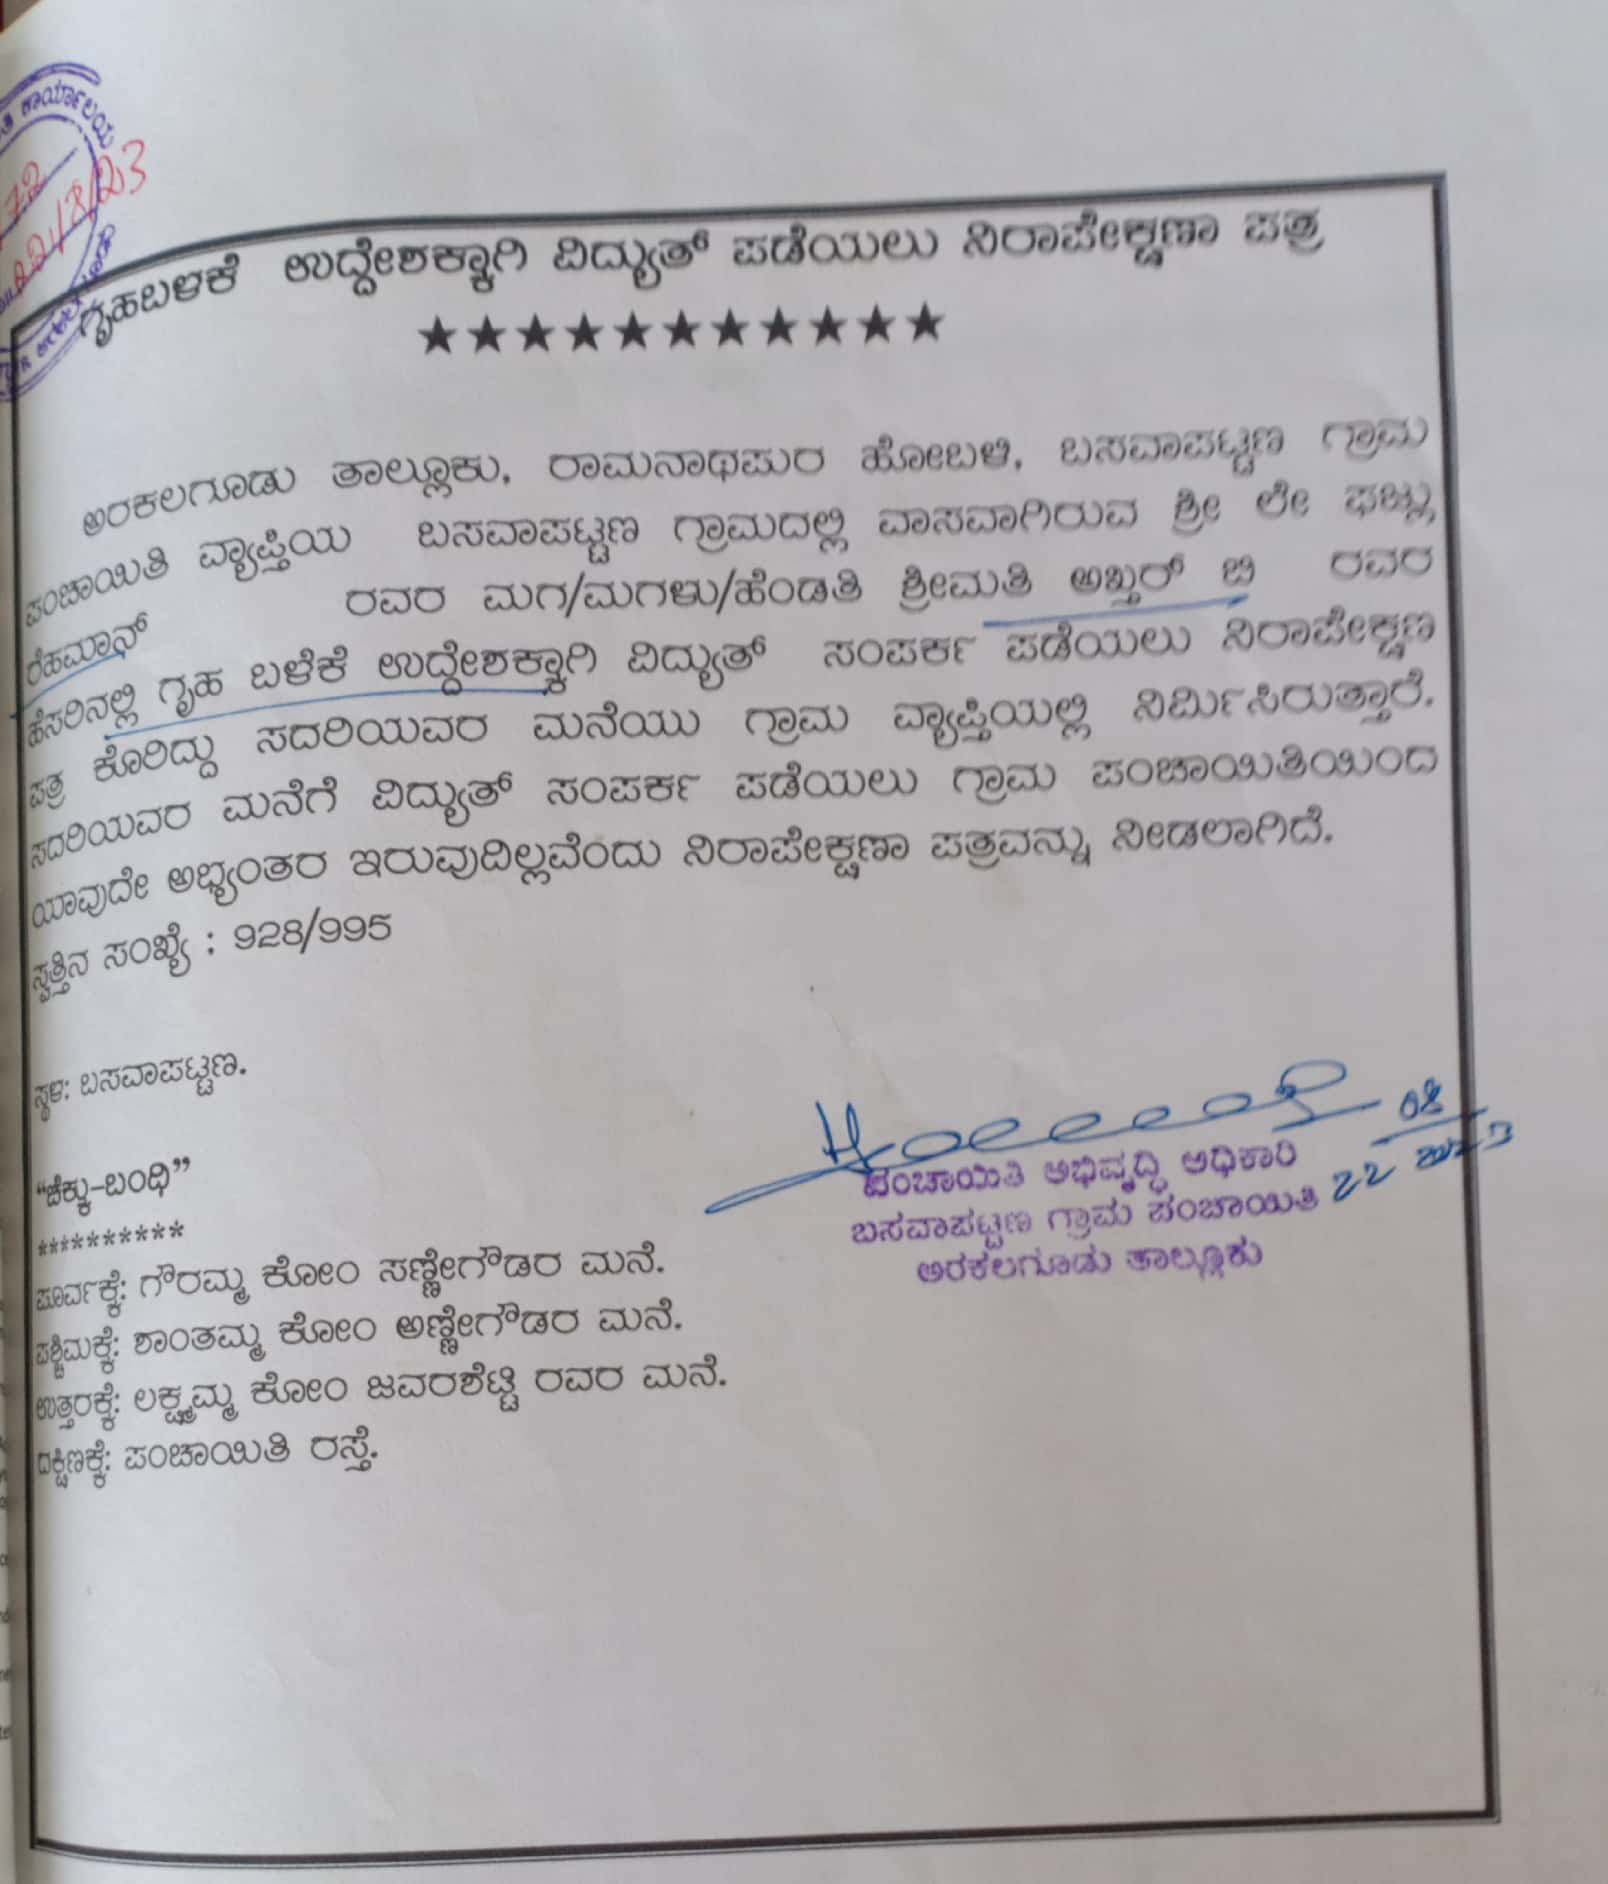 ಕಾರ್ಯಾಲಯ
22/8/23
ಗೃಹಬಳಕೆ ಉದ್ದೇಶಕ್ಕಾಗಿ ವಿದ್ಯುತ್ ಪಡೆಯಲು ನಿರಾಪೇಕ್ಷಣಾ ಪತ್ರ
★★★★★★★★★★★
ಅರಕಲಗೂಡು ತಾಲ್ಲೂಕು, ರಾಮನಾಥಪುರ ಹೋಬಳಿ, ಬಸವಾಪಟ್ಟಣ ಗ್ರಾಮ
ಪಂಚಾಯಿತಿ ವ್ಯಾಪ್ತಿಯ ಬಸವಾಪಟ್ಟಣ ಗ್ರಾಮದಲ್ಲಿ ವಾಸವಾಗಿರುವ ಶ್ರೀ ಲೇ ಫಜ್ಲು
ರೆಹಮಾನ್ ರವರ ಮಗ/ಮಗಳು/ಹೆಂಡತಿ ಶ್ರೀಮತಿ ಅಖ್ತರ್ ಬಿ ರವರ
ಹೆಸರಿನಲ್ಲಿ ಗೃಹ ಬಳಕೆ ಉದ್ದೇಶಕ್ಕಾಗಿ ವಿದ್ಯುತ್ ಸಂಪರ್ಕ ಪಡೆಯಲು ನಿರಾಪೇಕ್ಷಣ
ಪತ್ರ ಕೊರಿದ್ದು ಸದರಿಯವರ ಮನೆಯು ಗ್ರಾಮ ವ್ಯಾಪ್ತಿಯಲ್ಲಿ ನಿರ್ಮಿಸಿರುತ್ತಾರೆ.
ಸದರಿಯವರ ಮನೆಗೆ ವಿದ್ಯುತ್ ಸಂಪರ್ಕ ಪಡೆಯಲು ಗ್ರಾಮ ಪಂಚಾಯಿತಿಯಿಂದ
ಯಾವುದೇ ಅಭ್ಯಂತರ ಇರುವುದಿಲ್ಲವೆಂದು ನಿರಾಪೇಕ್ಷಣಾ ಪತ್ರವನ್ನು ನೀಡಲಾಗಿದೆ.
ಸ್ವತ್ತಿನ ಸಂಖ್ಯೆ : 928/995
ಸ್ಥಳ: ಬಸವಾಪಟ್ಟಣ.
08
22 2023
ಪಂಚಾಯಿತಿ ಅಭಿವೃದ್ಧಿ ಅಧಿಕಾರಿ
ಬಸವಾಪಟ್ಟಣ ಗ್ರಾಮ ಪಂಚಾಯಿತಿ
ಅರಕಲಗೂಡು ತಾಲ್ಲೂಕು
“ಚೆಕ್ಕು-ಬಂಧಿ”
**********
ಪೂರ್ವಕ್ಕೆ: ಗೌರಮ್ಮ ಕೋಂ ಸಣ್ಣೇಗೌಡರ ಮನೆ.
ಪಶ್ಚಿಮಕ್ಕೆ: ಶಾಂತಮ್ಮ ಕೋಂ ಅಣ್ಣೇಗೌಡರ ಮನೆ.
ಉತ್ತರಕ್ಕೆ: ಲಕ್ಷ್ಮಮ್ಮ ಕೋಂ ಜವರಶೆಟ್ಟಿ ರವರ ಮನೆ.
ದಕ್ಷಿಣಕ್ಕೆ: ಪಂಚಾಯಿತಿ ರಸ್ತೆ.